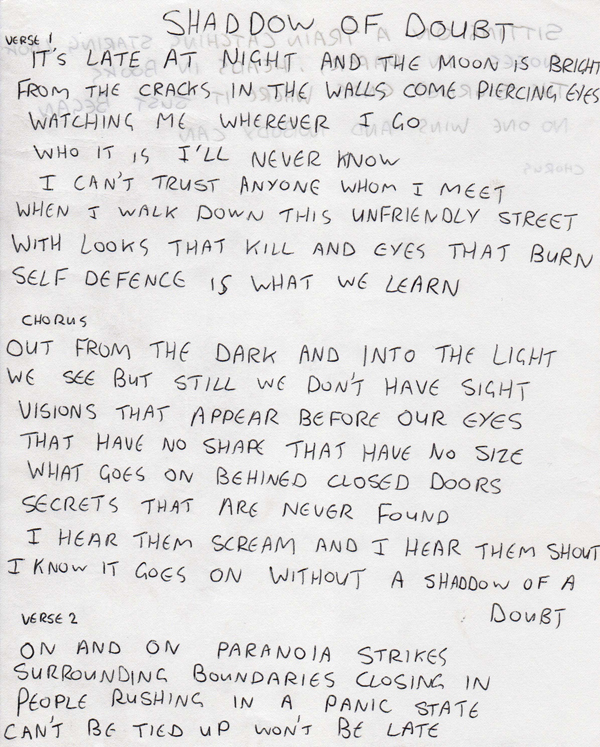 SHADDOW OF DOUBT
VERSE 1
IT'S LATE AT NIGHT AND THE MOON IS BRIGHT
FROM THE CRACKS IN THE WALLS COME PIERCING EYES
WATCHING ME WHEREVER I GO
WHO IT IS I'LL NEVER KNOW
I CAN'T TRUST ANYONE WHOM I MEET
WHEN I WALK DOWN THIS UNFRIENDLY STREET
WITH LOOKS THAT KILL AND EYES THAT BURN
SELF DEFENCE IS WHAT WE LEARN
CHORUS
OUT FROM THE DARK AND INTO THE LIGHT
WE SEE BUT STILL WE DON'T HAVE SIGHT
VISIONS THAT APPEAR BEFORE OUR EYES
THAT HAVE NO SHAPE THAT HAVE NO SIZE
WHAT GOES ON BEHINED CLOSED DOORS
SECRETS THAT ARE NEVER FOUND
I HEAR THEM SCREAM AND I HEAR THEM SHOUT
I KNOW IT GOES ON WITHOUT A SHADDOW OF A
DOUBT
VERSE 2
ON AND ON PARANOIA STRIKES
SURROUNDING BOUNDARIES CLOSING IN
PEOPLE RUSHING IN A PANIC STATE
CAN'T BE TIED UP WON'T BE LATE